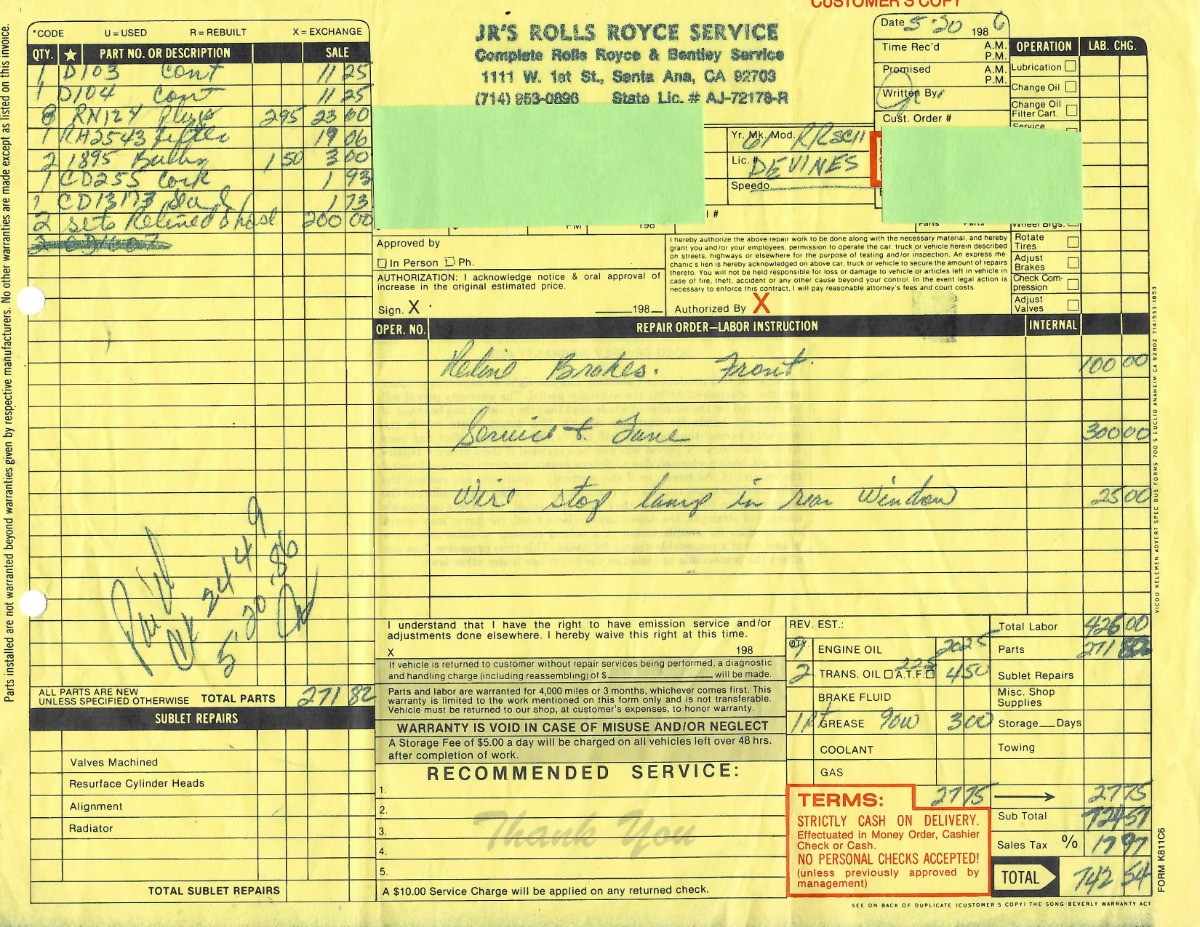 CUSTOMER'S COPY
*CODE U=USED R=REBUILT X=EXCHANGE
QTY. ★ PART NO. OR DESCRIPTION SALE
1 D103 Cont 11 25
1 D104 Cont 11 25
8 RN12Y Plugs 295 23 60
1 RH2543 Filter 19 06
2 1895 Bulbs 1 50 3 00
1 CD255 Cork 1 93
1 CD13173 1 73
2 sets Relined Shoes 200 00
JR'S ROLLS ROYCE SERVICE
Complete Rolls Royce & Bentley Service
1111 W. 1st St., Santa Ana, CA 92703
(714) 953-0896 State Lic. # AJ-72178-R
Date 5-30 1986
Time Rec'd A.M. P.M.
Promised A.M. P.M.
Written By
Cust. Order #
OPERATION LAB. CHG.
Lubrication
Change Oil
Change Oil Filter Cart.
Yr. Mk. Mod. 61 RRSCII
Lic. # DEVINES
Speedo
Wheel Brgs.
Rotate Tires
Adjust Brakes
Check Compression
Adjust Valves
Approved by
In Person Ph.
AUTHORIZATION: I acknowledge notice & oral approval of
increase in the original estimated price.
Sign. X 198
I hereby authorize the above repair work to be done along with the necessary material, and hereby
grant you and/or your employees, permission to operate the car, truck or vehicle herein described
on streets, highways or elsewhere for the purpose of testing and/or inspection. An express me-
chanic's lien is hereby acknowledged on above car, truck or vehicle to secure the amount of repairs
thereto. You will not be held responsible for loss or damage to vehicle or articles left in vehicle in
case of fire, theft, accident or any other cause beyond your control. In the event legal action is
necessary to enforce this contract, I will pay reasonable attorney's fees and court costs.
Authorized By X
OPER. NO. REPAIR ORDER—LABOR INSTRUCTION INTERNAL
Reline Brakes. Front. 100 00
Service & Tune 300 00
Wire stop lamp in rear Window 25 00
Paid
CK 24449
5-30-86
ALL PARTS ARE NEW
UNLESS SPECIFIED OTHERWISE TOTAL PARTS 271 82
SUBLET REPAIRS
Valves Machined
Resurface Cylinder Heads
Alignment
Radiator
TOTAL SUBLET REPAIRS
I understand that I have the right to have emission service and/or
adjustments done elsewhere. I hereby waive this right at this time.
X 198
If vehicle is returned to customer without repair services being performed, a diagnostic
and handling charge (including reassembling) of $ will be made.
Parts and labor are warranted for 4,000 miles or 3 months, whichever comes first. This
warranty is limited to the work mentioned on this form only and is not transferable.
Vehicle must be returned to our shop, at customer's expenses, to honor warranty.
WARRANTY IS VOID IN CASE OF MISUSE AND/OR NEGLECT
A Storage Fee of $5.00 a day will be charged on all vehicles left over 48 hrs.
after completion of work.
RECOMMENDED SERVICE:
1.
2.
3.
4.
5.
Thank You
A $10.00 Service Charge will be applied on any returned check.
REV. EST.:
QTY.
9 ENGINE OIL 20 25
2 TRANS. OIL A.T.F. 225 4 50
BRAKE FLUID
1 Pt GREASE 90W 3 00
COOLANT
GAS
27 75 → 27 75
Total Labor 426 00
Parts 271 82
Sublet Repairs
Misc. Shop Supplies
Storage Days
Towing
Sub Total 724 57
Sales Tax % 17 97
TOTAL 742 54
TERMS:
STRICTLY CASH ON DELIVERY.
Effectuated in Money Order, Cashier
Check or Cash.
NO PERSONAL CHECKS ACCEPTED!
(unless previously approved by
management)
SEE ON BACK OF DUPLICATE (CUSTOMER'S COPY) THE SONG-BEVERLY WARRANTY ACT
Parts installed are not warranted beyond warranties given by respective manufacturers. No other warranties are made except as listed on this invoice.
FORM K811C6